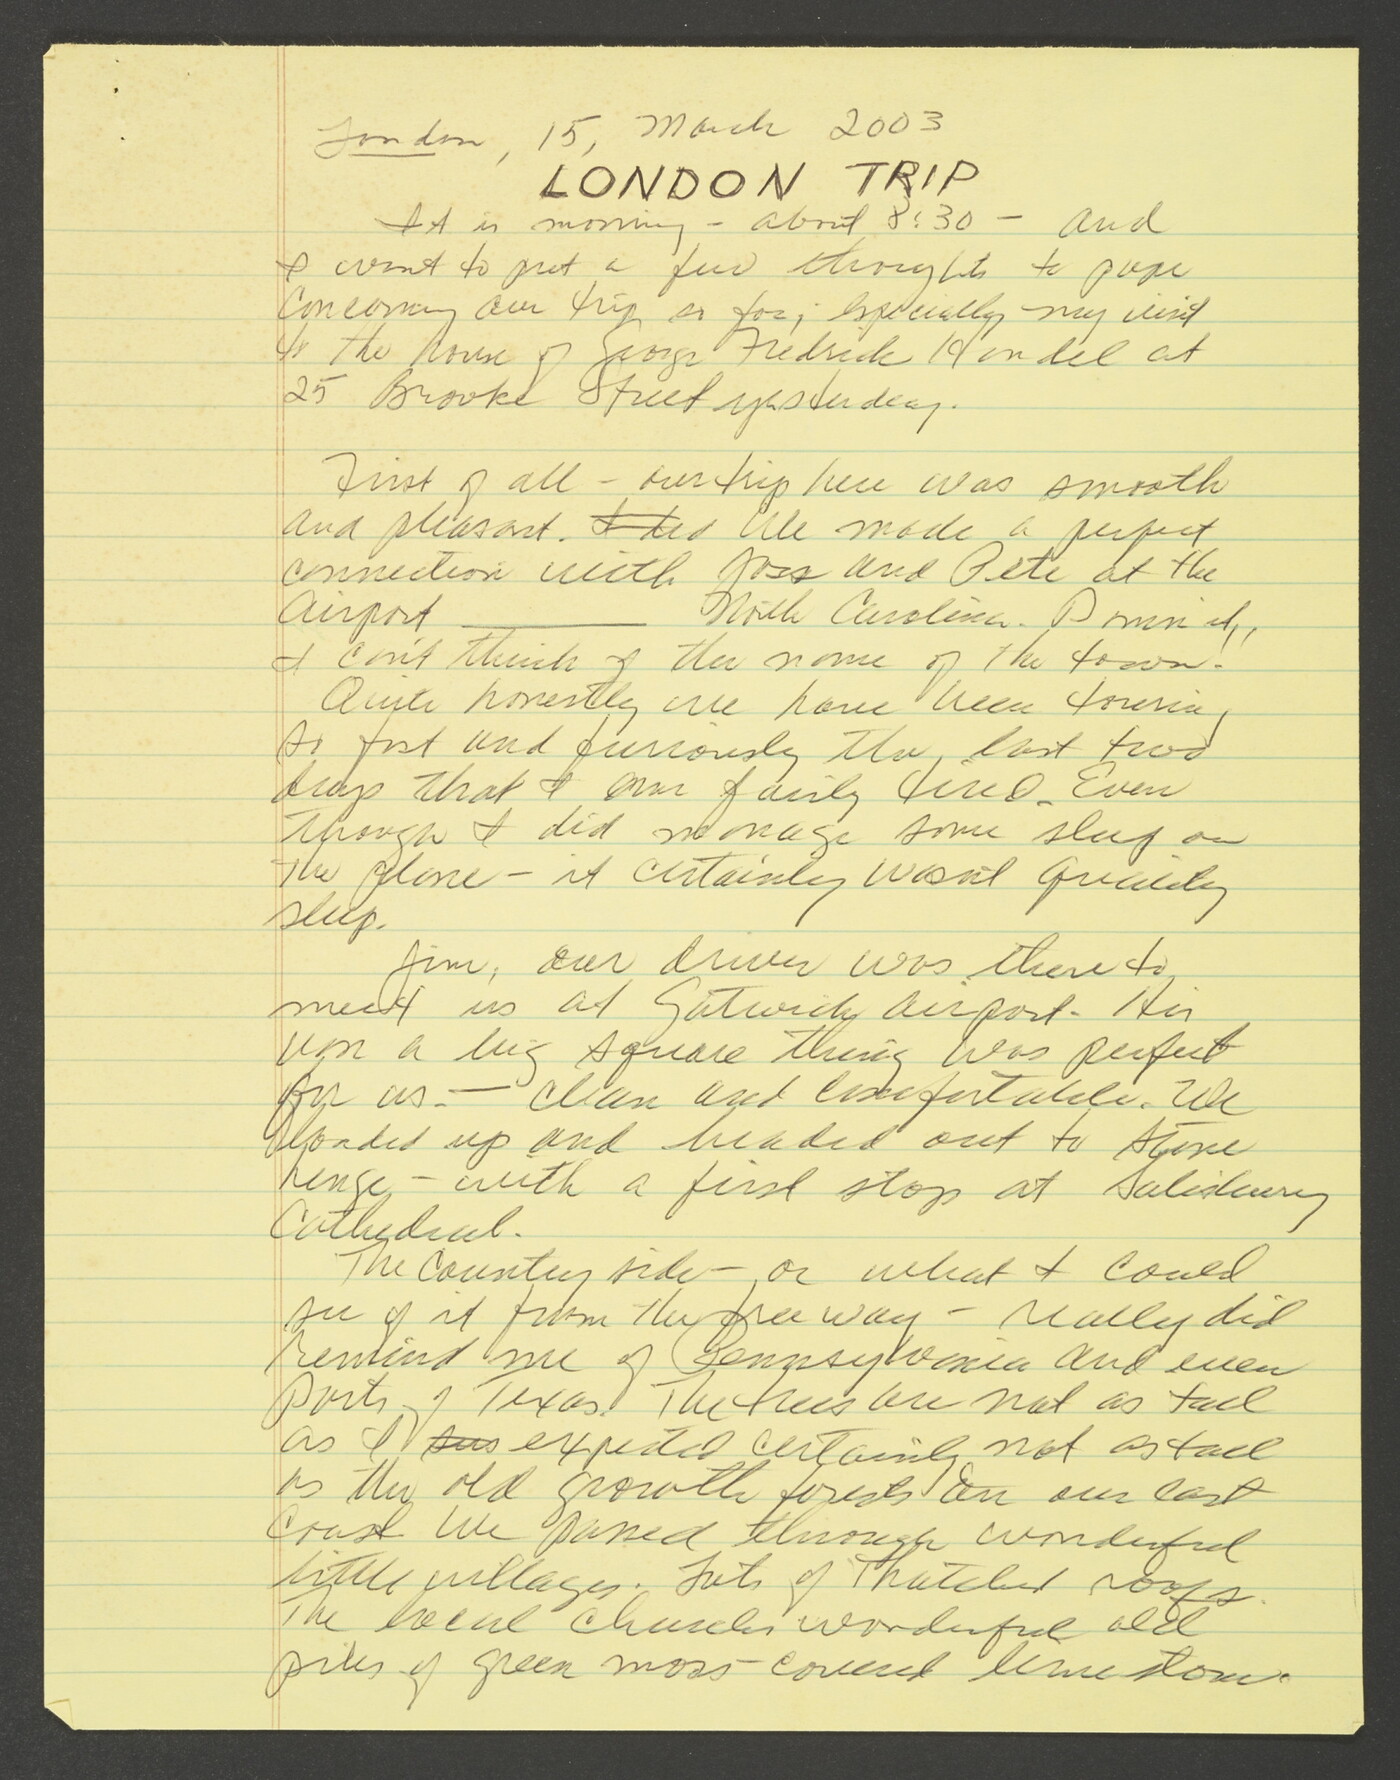 London, 15, March 2003
LONDON TRIP
It is morning - about 8:30 - and
I want to put a few thoughts to pape
concerning our trip so far; especially my visit
to the house of George Fredrick Handel at
25 Brooke Street yesterday.
First of all - our trip here was smooth
and pleasant. I did We made a perfect
connection with Joss and Pete at the
Airport ______ North Carolina.
I can't think of the name of the town.
Quite honestly we have been touring
so fast and furiously the last two
days that I am fairly tired. Even
though I did manage some sleep on
the plane - it certainly wasn't quality
sleep.
Jim, our driver was there to
meet us at Gatwick airport. His
van a big square thing was perfect
for us - clean and comfortable. We
loaded up and headed out to Stone
henge - with a first stop at Salisbury
Cathedral.
The Country side - or what I could
see of it from the free way - really did
remind me of Pennsylvania and even
parts of Texas. The trees are not as tall
as I expected certainly not as tall
as the old growth forests on our east
coast We passed through wonderful
little villages. Lots of Thatched roofs.
The local churches wonderful old
piles of green moss-covered limestone.